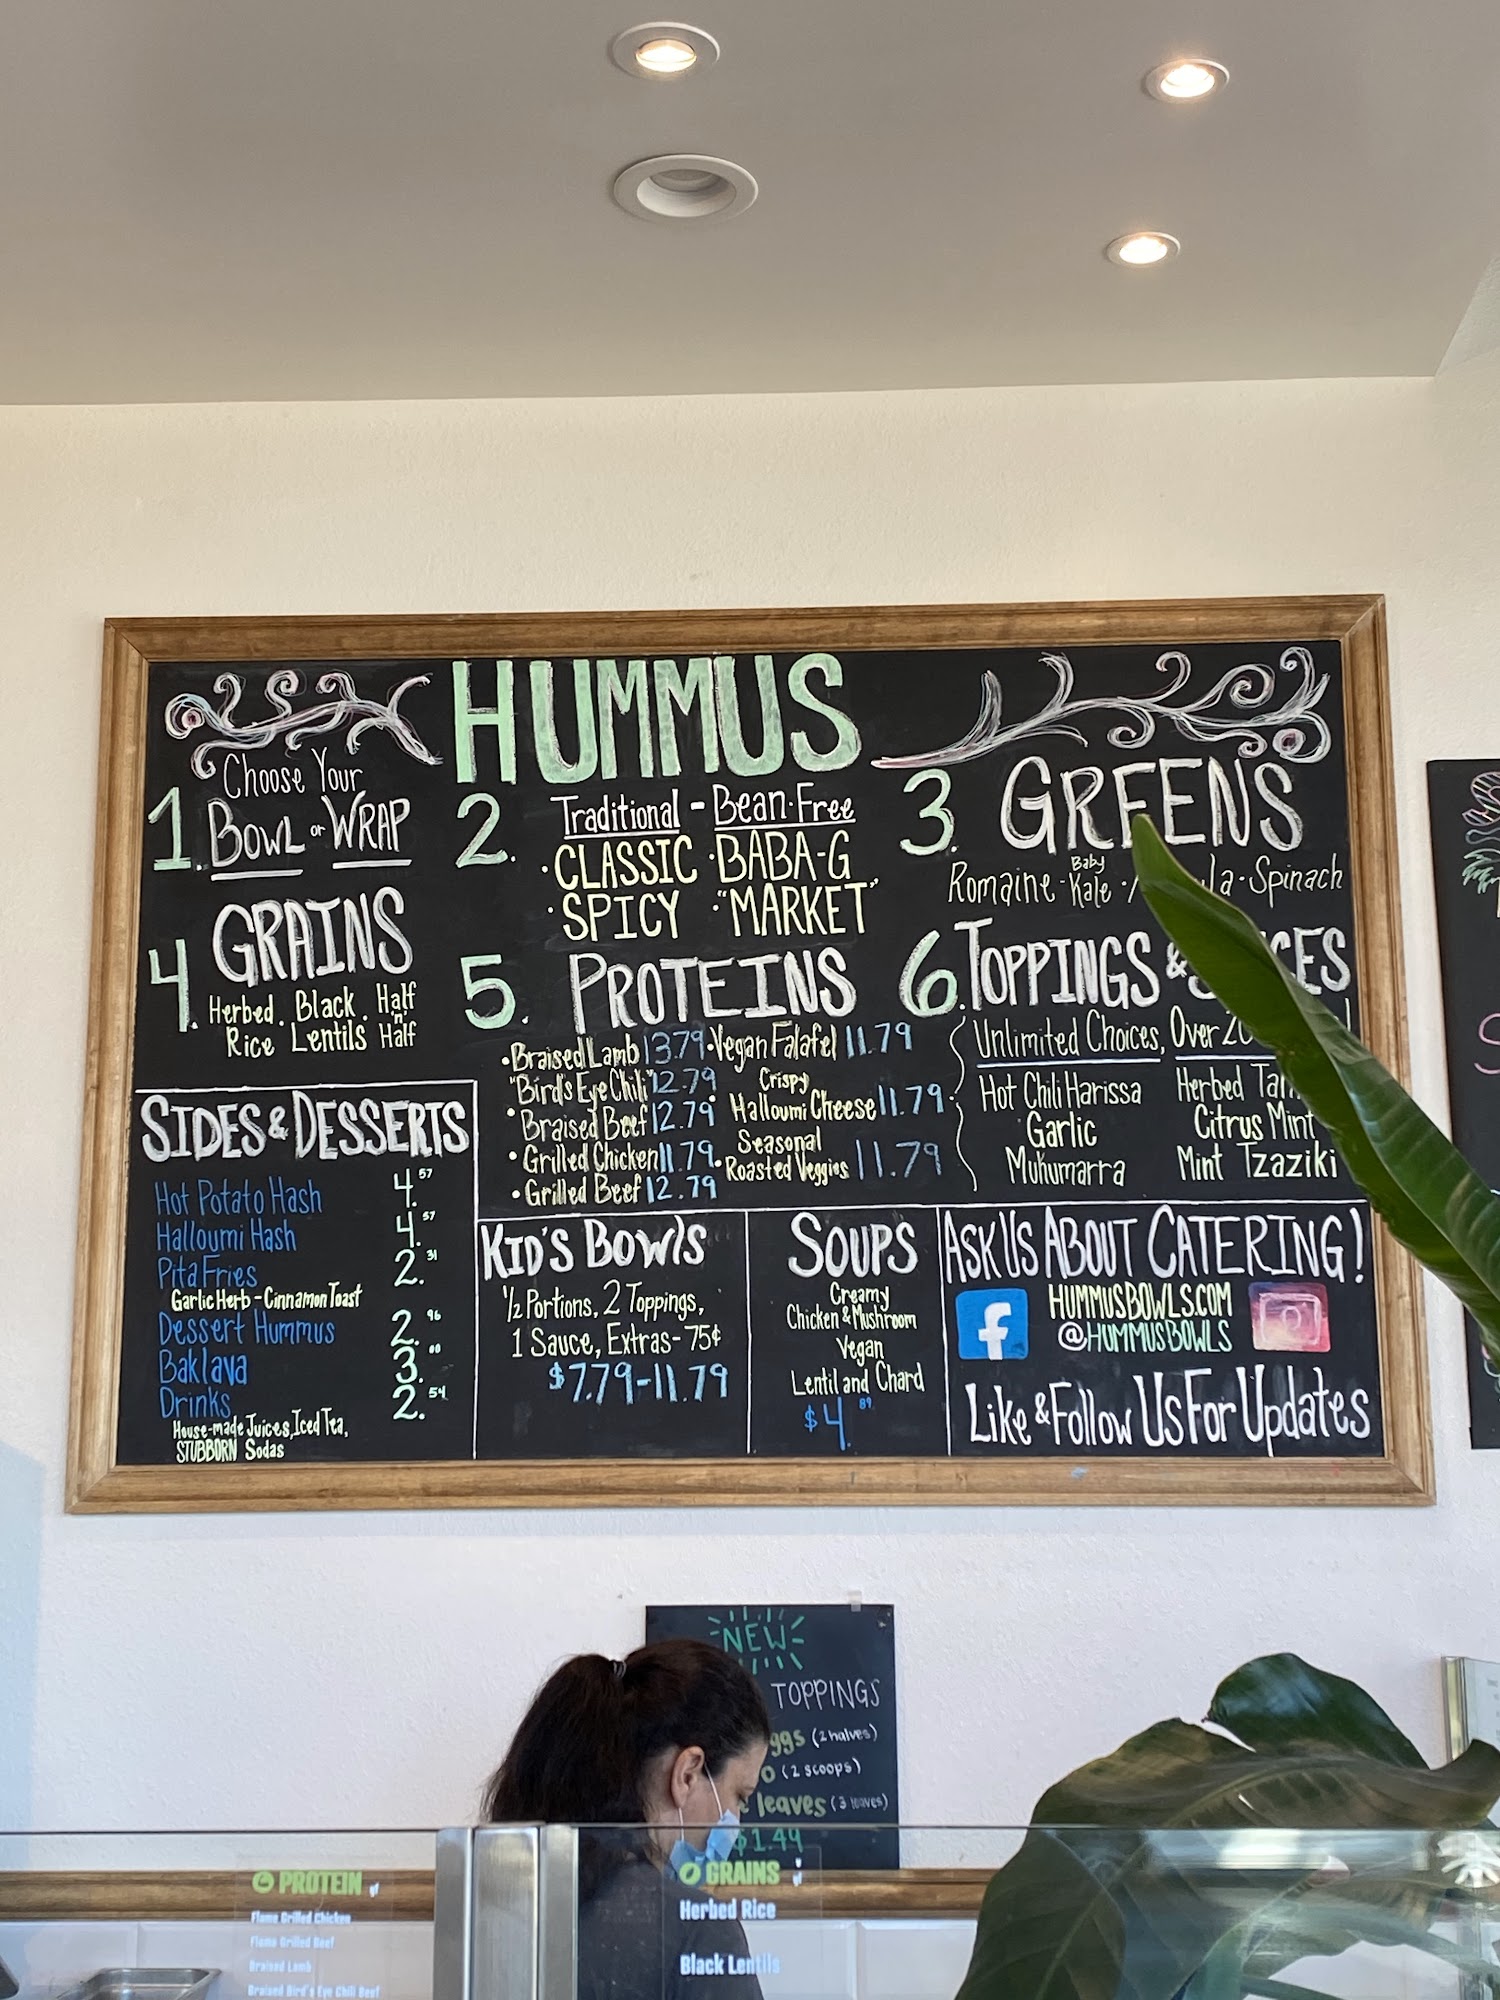 HUMMUS
1. Choose Your
BOWL or WRAP
2. Traditional - Bean-Free
·CLASSIC ·BABA-G
·SPICY ·"MARKET"
3. GREENS
Romaine · Baby Kale · · Spinach
4. GRAINS
Herbed Rice · Black Lentils · Half 'n' Half
5. PROTEINS
·Braised Lamb 13.79
"Bird's Eye Chili" 12.79
·Braised Beef 12.79
·Grilled Chicken 11.79
·Grilled Beef 12.79
·Vegan Falafel 11.79
·Crispy Halloumi Cheese 11.79
·Seasonal Roasted Veggies 11.79
6. TOPPINGS &
Unlimited Choices, Over
Hot Chili Harissa
Garlic
Muhumarra
Herbed
Citrus Mint
Mint Tzaziki
SIDES & DESSERTS
Hot Potato Hash 4.57
Halloumi Hash 4.57
Pita Fries 2.31
Garlic Herb - Cinnamon Toast
Dessert Hummus 2.96
Baklava 3.00
Drinks 2.54
House-made Juices, Iced Tea,
STUBBORN Sodas
KID'S BOWLS
1/2 Portions, 2 Toppings,
1 Sauce, Extras - 75¢
$7.79-11.79
SOUPS
Creamy
Chicken & Mushroom
Vegan
Lentil and Chard
$4.89
ASK US ABOUT CATERING!
f
HUMMUSBOWLS.COM
@HUMMUSBOWLS
Like & Follow Us For Updates
NEW
TOPPINGS
(2 halves)
(2 scoops)
leaves (3 leaves)
$1.49
PROTEIN
Flame Grilled Chicken
Flame Grilled Beef
Braised Lamb
Braised Bird's Eye Chili Beef
GRAINS
Herbed Rice
Black Lentils